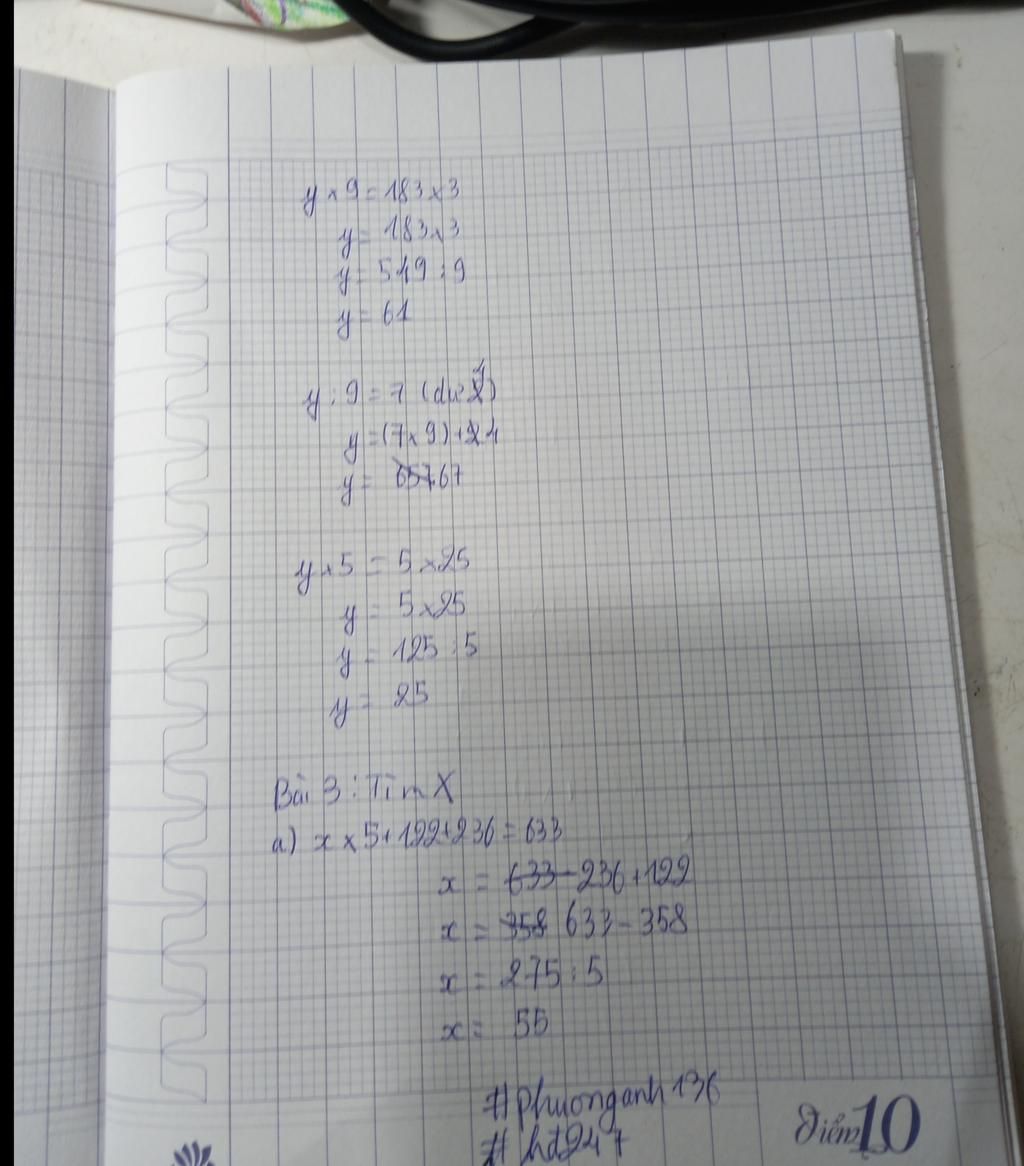 y × 9 = 183 × 3
y = 183 × 3
y = 549 : 9
y = 61
y : 9 = 7 (dư 4)
y = (7 × 9) + 4
y = 67
y × 5 = 5 × 25
y = 5 × 25
y = 125 : 5
y = 25
Bài 3 : Tìm X
a) x × 5 + 122 + 236 = 633
x = 633 - 236 + 122
x = 358 633 - 358
x = 275 : 5
x = 55
#phuonganh136
#hd247
Điểm 10